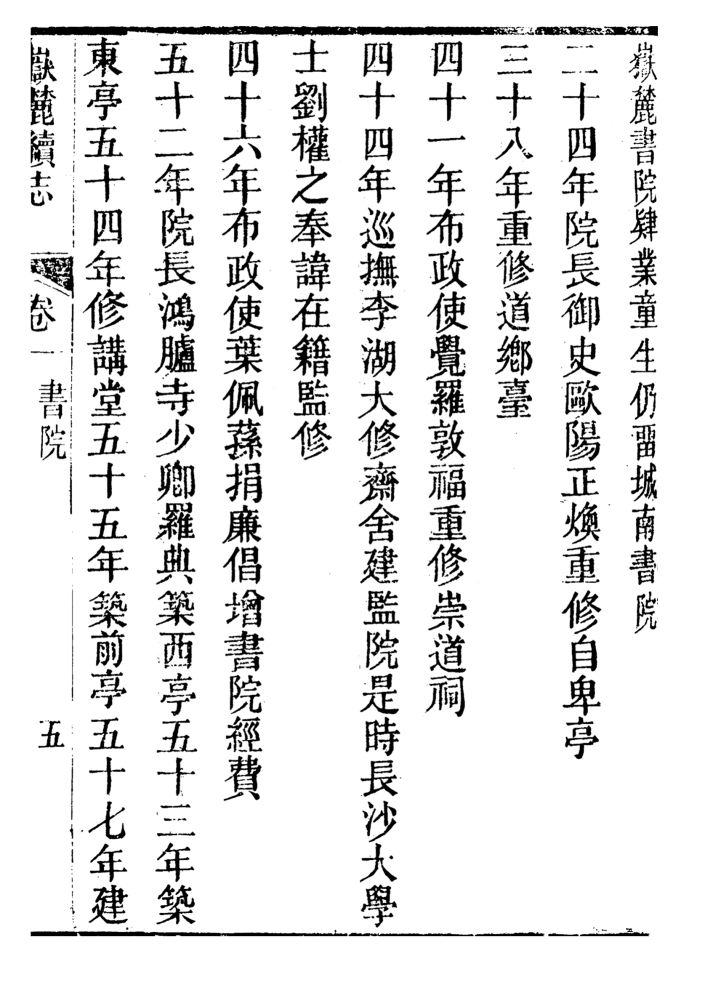 嶽麓書院肄業童生仍畱城南書院
二十四年院長御史歐陽正煥重修自卑亭
三十八年重修道鄉臺
四十一年布政使覺羅敦福重修崇道祠
四十四年巡撫李湖大修齋舍建監院是時長沙大學
士劉權之奉諱在籍監修
四十六年布政使葉佩蓀捐廉倡增書院經費
五十二年院長鴻臚寺少卿羅典築西亭五十三年築
東亭五十四年修講堂五十五年築前亭五十七年建
嶽麓續志 卷一 書院 五